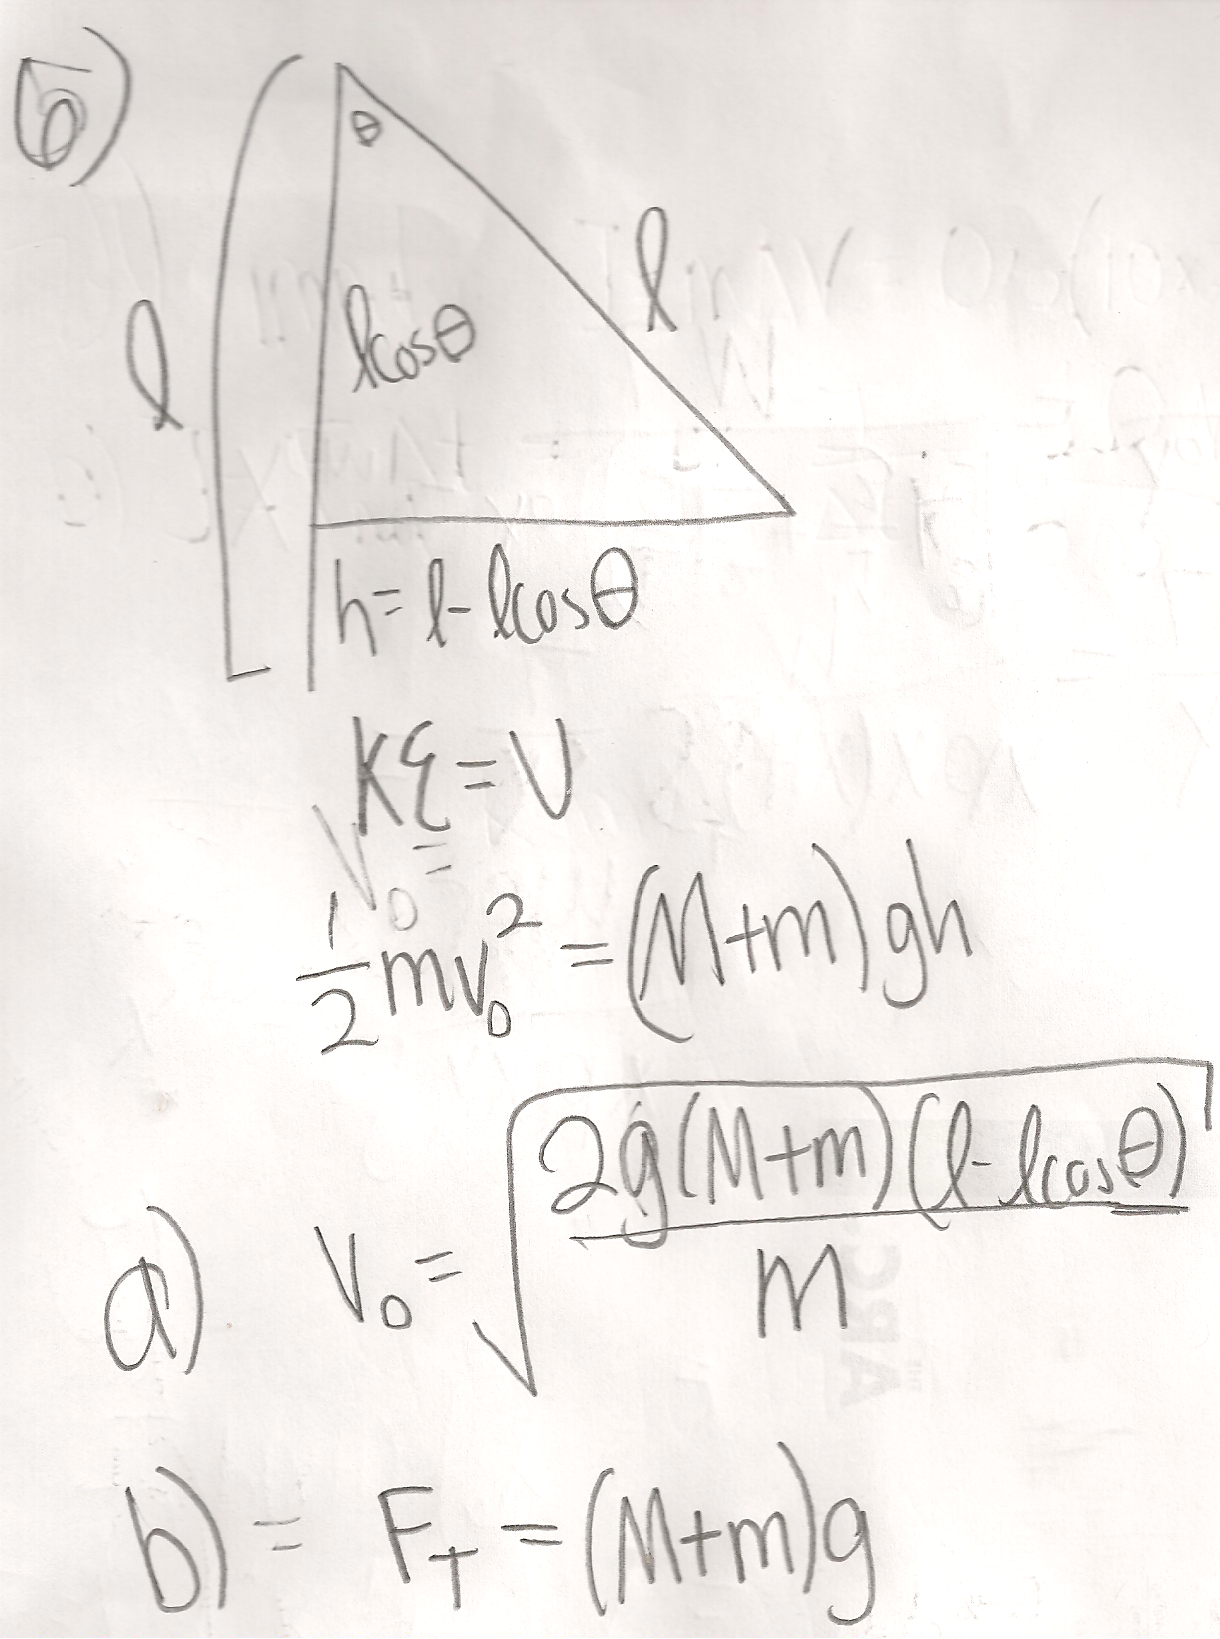 6)
θ
l
l
lcosθ
h=l-lcosθ
KE=U
1/2 mv₀² = (M+m)gh
a) v₀ = √(2g(M+m)(l-lcosθ)/m)
b) = F_T = (M+m)g